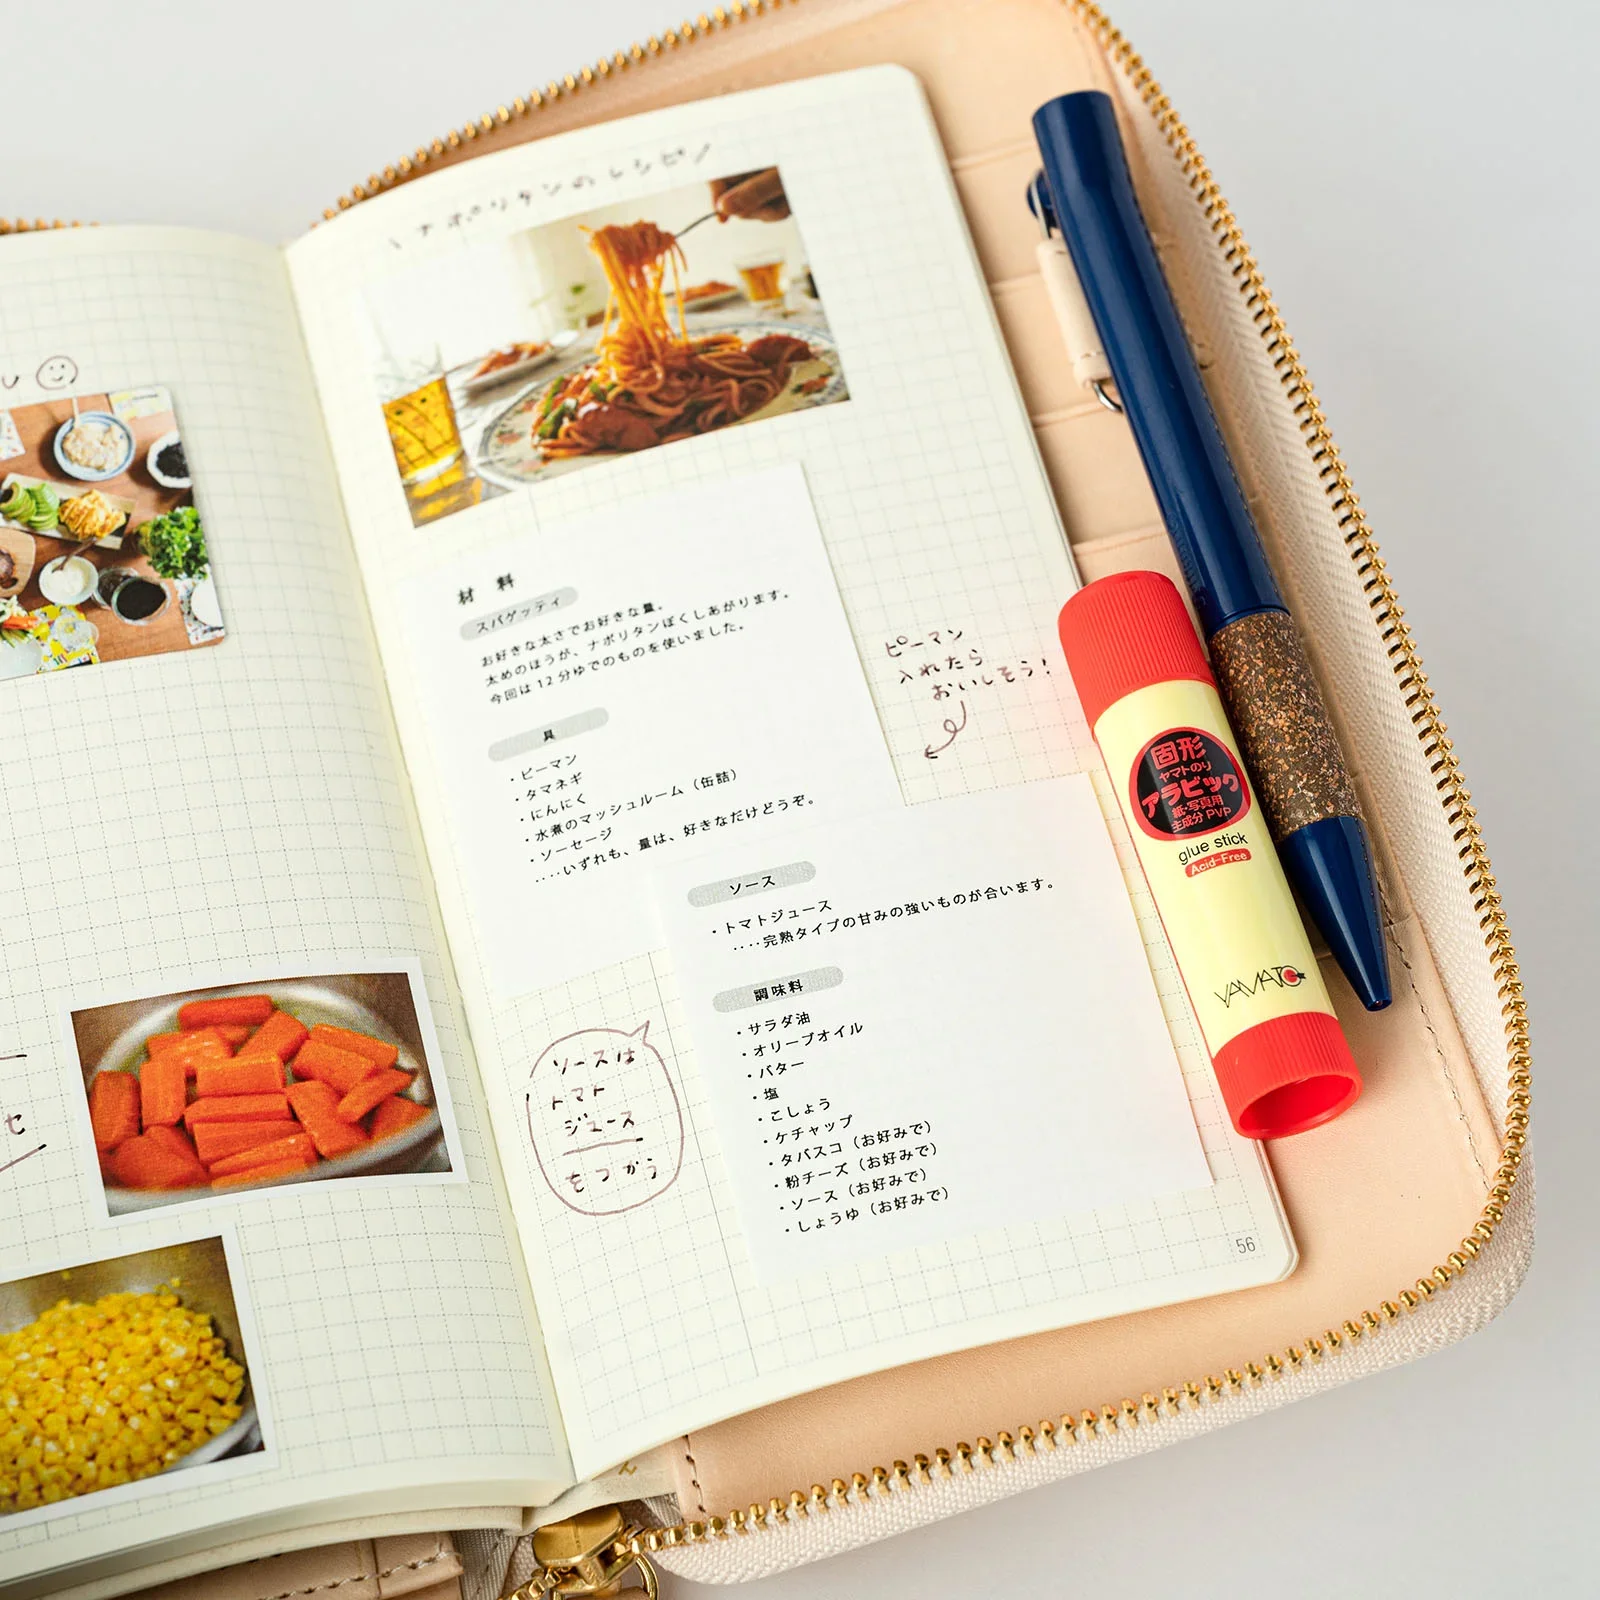 し
セ
\ナポリタンのレシピ/
材料
スパゲッティ
お好きな太さでお好きな量。
太めのほうが、ナポリタンぽくしあがります。
今回は12分ゆでのものを使いました。
具
・ピーマン
・タマネギ
・にんにく
・水煮のマッシュルーム（缶詰）
・ソーセージ
‥‥いずれも、量は、好きなだけどうぞ。
ピーマン
入れたら
おいしそう！
ソース
・トマトジュース
‥‥完熟タイプの甘みの強いものが合います。
調味料
・サラダ油
・オリーブオイル
・バター
・塩
・こしょう
・ケチャップ
・タバスコ（お好みで）
・粉チーズ（お好みで）
・ソース（お好みで）
・しょうゆ（お好みで）
ソースは
トマト
ジュース
をつかう
56
固形
ヤマトのり
アラビック
紙・写真用
主成分 PVP
glue stick
Acid-Free
YAMATO